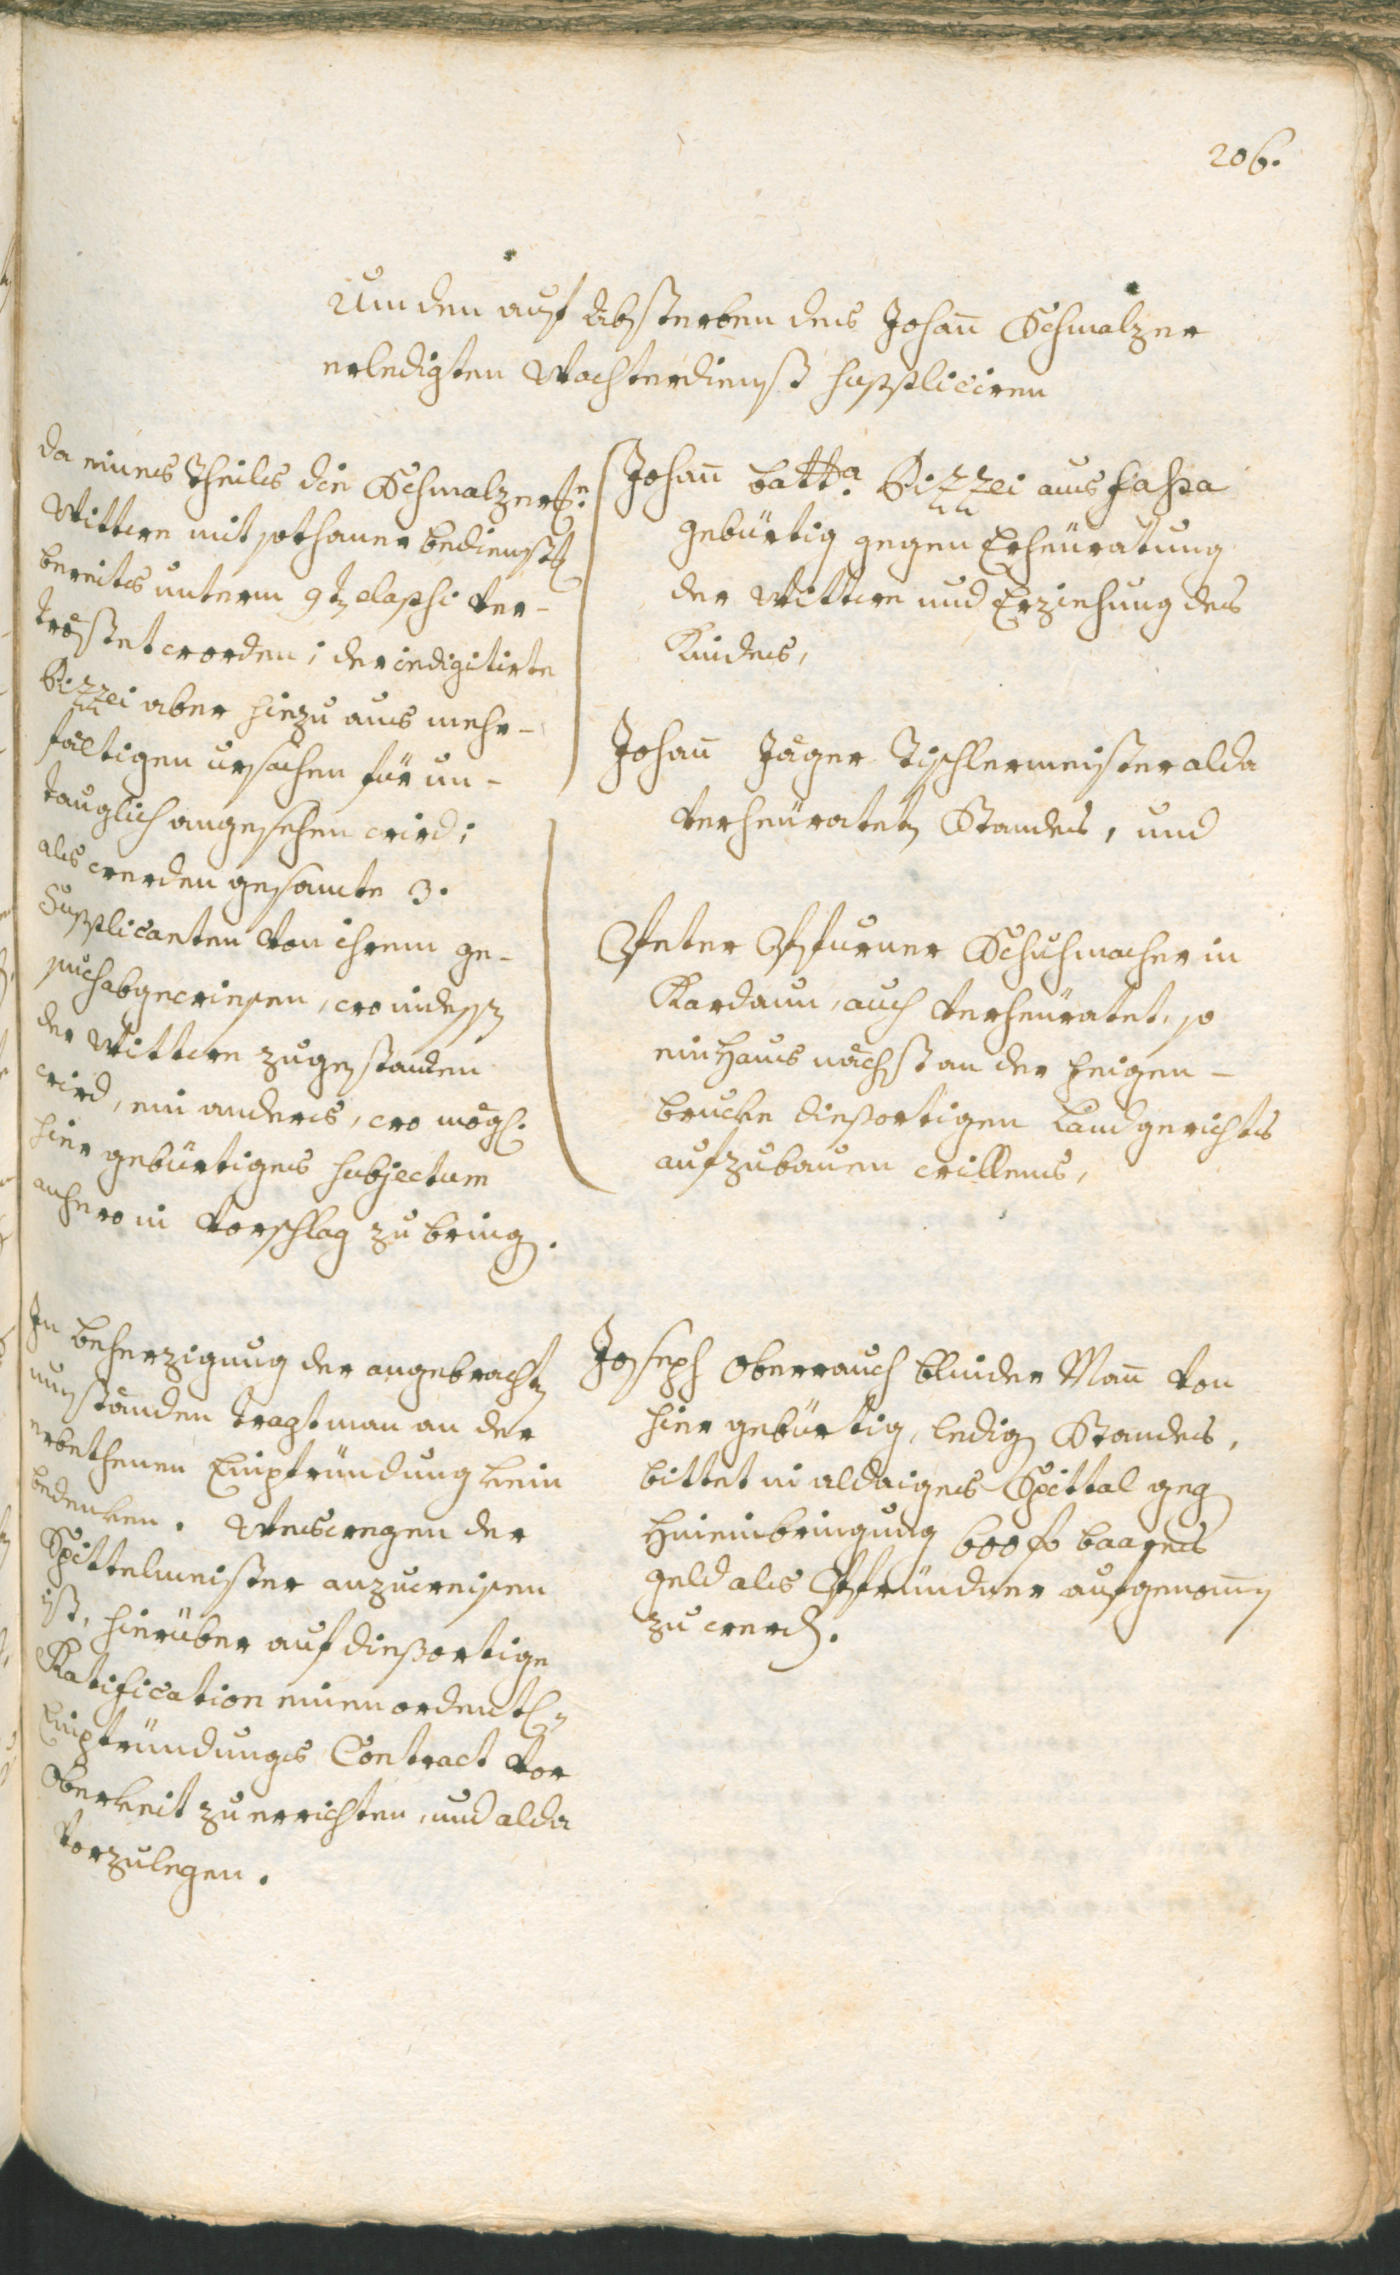 206.
Um den auf Absterben des Johan̄ Schmalzer
erledigten Wachterdienst suppliciren
da eines Theiles die Schmalzer
Wittwe mit sothaner bedienst
bereits unterm 9t elapsi ver-
tröstet worden; der indigitirte
Rizzei aber hiezu aus mehr-
fältigen ursachen für un-
tauglich angesehen wird;
als werden gesamte 3.
Supplicanten von ihrem ge-
such abgewiesen, wo indessen
der Wittwe zugestanden
wird, ein anderes, wo mögl:
hier gebürtiges subjectum
anhero in Vorschlag zu bringen.
Johan̄ Batta: Rizzei aus Fassa
gebürtig gegen Erheüratung
der Wittwe und Erziehung des
Kindes,
Johan̄ Jäger Tischlermeister alda
verheürateten Standes, und
Peter Pfurner Schuhmacher in
Kardaun, auch verheüratet, so
ein Haus nächst an der Feigen-
brucke diesortigen Landgerichts
aufzubauen willens,
In beherzigung der angebrachten
umständen tragt man an der
erbethenen Einpfründung kein
bedenken. Weswegen der
Spittelmeister anzuweisen
ist, hierüber auf diesortige
Ratification einen ordentlen
Einpfründungs Contract vor
Oberkeit zu errichten, und alda
vorzulegen.
Joseph Oberrauch blinder Man̄ von
hier gebürtig, ledigen Standes,
bittet in aldaiges Spittal gegen
Hineinbringung 600 f baares
geld als Pfründner aufgenom̄en
zu werden.